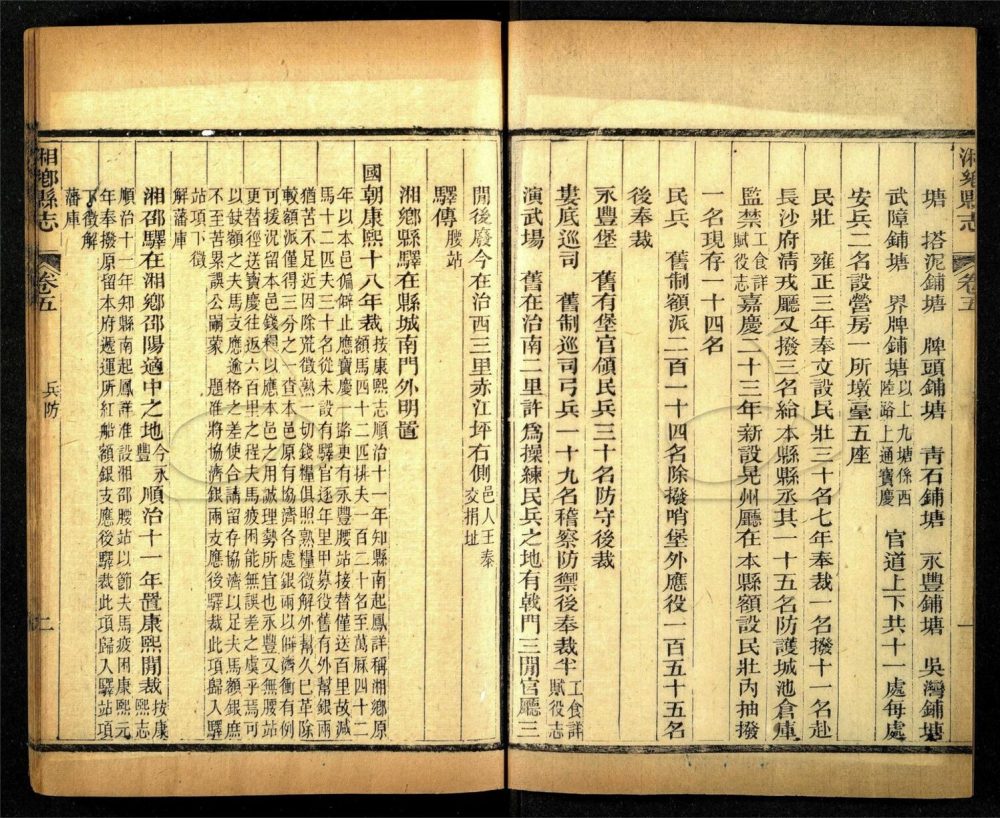 湘鄉縣志 卷五 一
塘 搭泥鋪塘 牌頭鋪塘 靑石鋪塘 永豐鋪塘 吳灣鋪塘
武障鋪塘 界牌鋪塘以上九塘係西陸路上通寶慶 官道上下共十一處每處
安兵二名設營房一所墩臺五座
民壯 雍正三年奉文設民壯三十名七年奉裁一名撥十一名赴
長沙府淸戎廳又撥三名給本縣縣丞其一十五名防護城池倉庫
監禁工食詳賦役志嘉慶二十三年新設晃州廳在本縣額設民壯內抽撥
一名現存一十四名
民兵 舊制額派二百一十四名除撥哨堡外應役一百五十五名
後奉裁
永豐堡 舊有堡官領民兵三十名防守後裁
婁底巡司 舊制巡司弓兵一十九名稽察防禦後奉裁半工食詳賦役志
演武場 舊在治南二里許爲操練民兵之地有戟門三間官廳三
間後廢今在治西三里赤江坪右側邑人王泰交捐址
驛傳腰站
湘鄉縣驛在縣城南門外明置
國朝康熙十八年裁按康熙志順治十一年知縣南起鳳詳稱湘鄉原
額馬四十二匹排夫一百二十名至萬厤四十二
年以本邑偏僻止應寶慶一路更有永豐腰站接替僅送百里故減
馬十二匹夫三十名從未設有驛官逐年里甲募役舊有外幫銀兩
猶苦不足近因除荒徵熟一切錢糧俱照熟糧徵解外幫久已革除
較額派僅得三分之一查本邑原有協濟各處銀兩以僻濟衝有例
可援況留本邑錢糧以應本邑之用誠理勢所宜也永豐又無腰站
更替徑送寶慶往返六百里之程夫馬疲困能無誤差之虞乎焉可
以缺額之夫馬支應逾格之差使合請留存協濟以足夫馬額銀庶
不至苦累誤公嗣蒙 題准將協濟銀兩支應後驛裁此項歸入驛
站項下徵
解藩庫
湘邵驛在湘鄉邵陽適中之地今永豐 順治十一年置康熙間裁按康熙志
順治十一年知縣南起鳳詳准設湘邵腰站以節夫馬疲困康熙元
年奉撥原留本府遞運所紅船額銀支應後驛裁此項歸入驛站項
下徵解
藩庫
湘鄉縣志 卷五 兵防 二